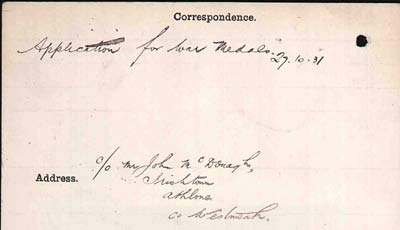 Correspondence.
Application for War Medals. 29.10.31
c/o Mr John McDonagh,
Address. Irishtown
Athlone
Co Westmeath.